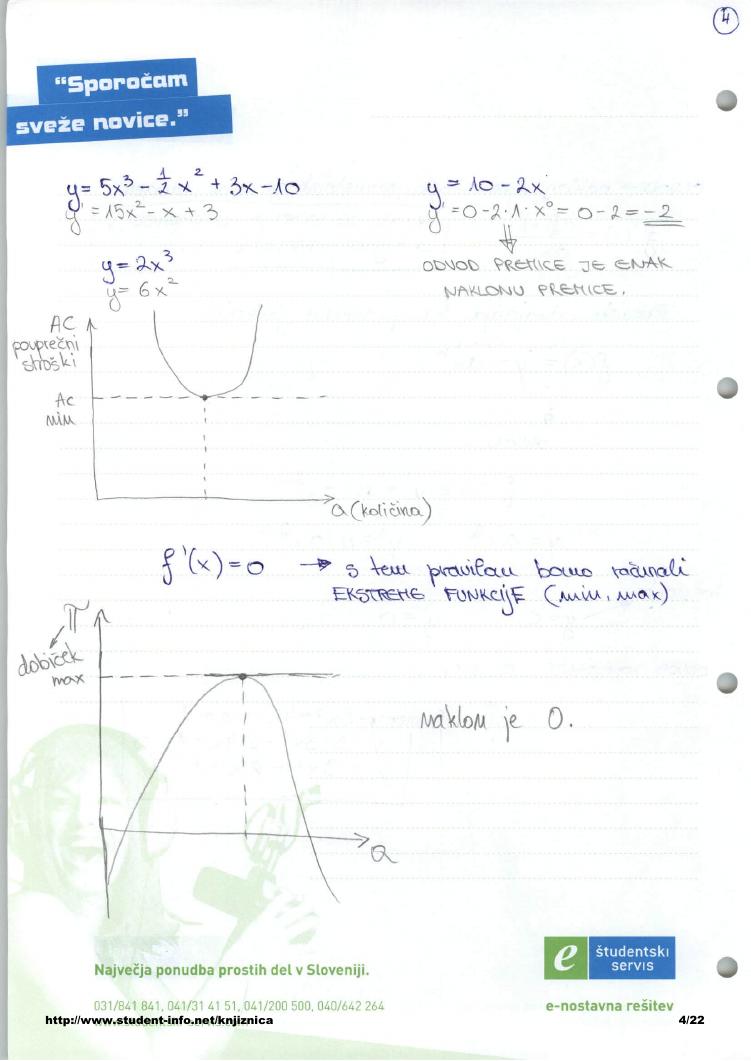 4
“Sporočam
sveže novice.”
y = 5x³ - 1/2 x² + 3x - 10
y' = 15x² - x + 3
y = 10 - 2x
y' = 0 - 2 · 1 · x⁰ = 0 - 2 = -2
⇓
ODVOD PREMICE JE ENAK
NAKLONU PREMICE.
y = 2x³
y = 6x²
AC
povprečni
stroški
AC
min
Q (količina)
f'(x) = 0 → s tem pravilom bomo računali
EKSTREME FUNKCIJE (min, max)
π
dobiček
max
naklon je 0.
Q
e študentski
servis
Največja ponudba prostih del v Sloveniji.
031/841 841, 041/31 41 51, 041/200 500, 040/642 264
e-nostavna rešitev
http://www.student-info.net/knjiznica
4/22